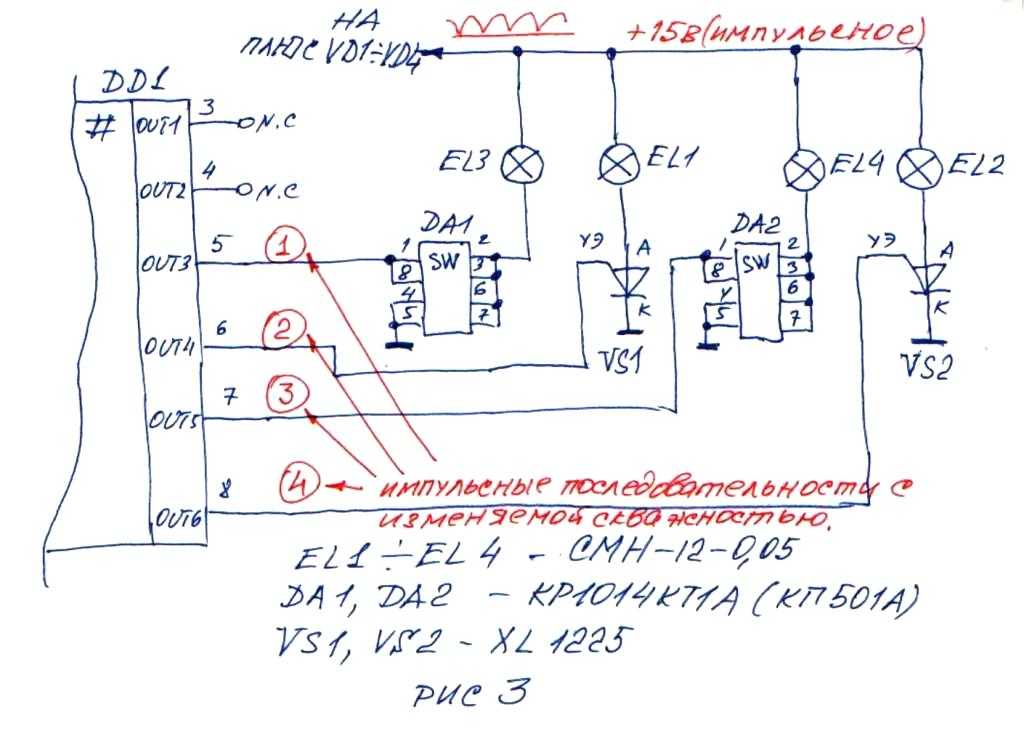 НА
ПЛЮС VD1÷VD4
+15В(ИМПУЛЬСНОЕ)
DD1
#
OUT1 3 N.C
OUT2 4 N.C
EL3 EL1 EL4 EL2
DA1 DA2
OUT3 5 1
1 8 4 5 SW 2 3 6 7
УЭ А К
VS1
1 8 4 5 SW 2 3 6 7
УЭ А К
VS2
OUT4 6 2
OUT5 7 3
OUT6 8 4
ИМПУЛЬСНЫЕ ПОСЛЕДОВАТЕЛЬНОСТИ С
ИЗМЕНЯЕМОЙ СКВАЖНОСТЬЮ.
EL1÷EL4 - СМН-12-0,05
DA1, DA2 - КР1014КТ1А (КП501А)
VS1, VS2 - XL1225
РИС 3